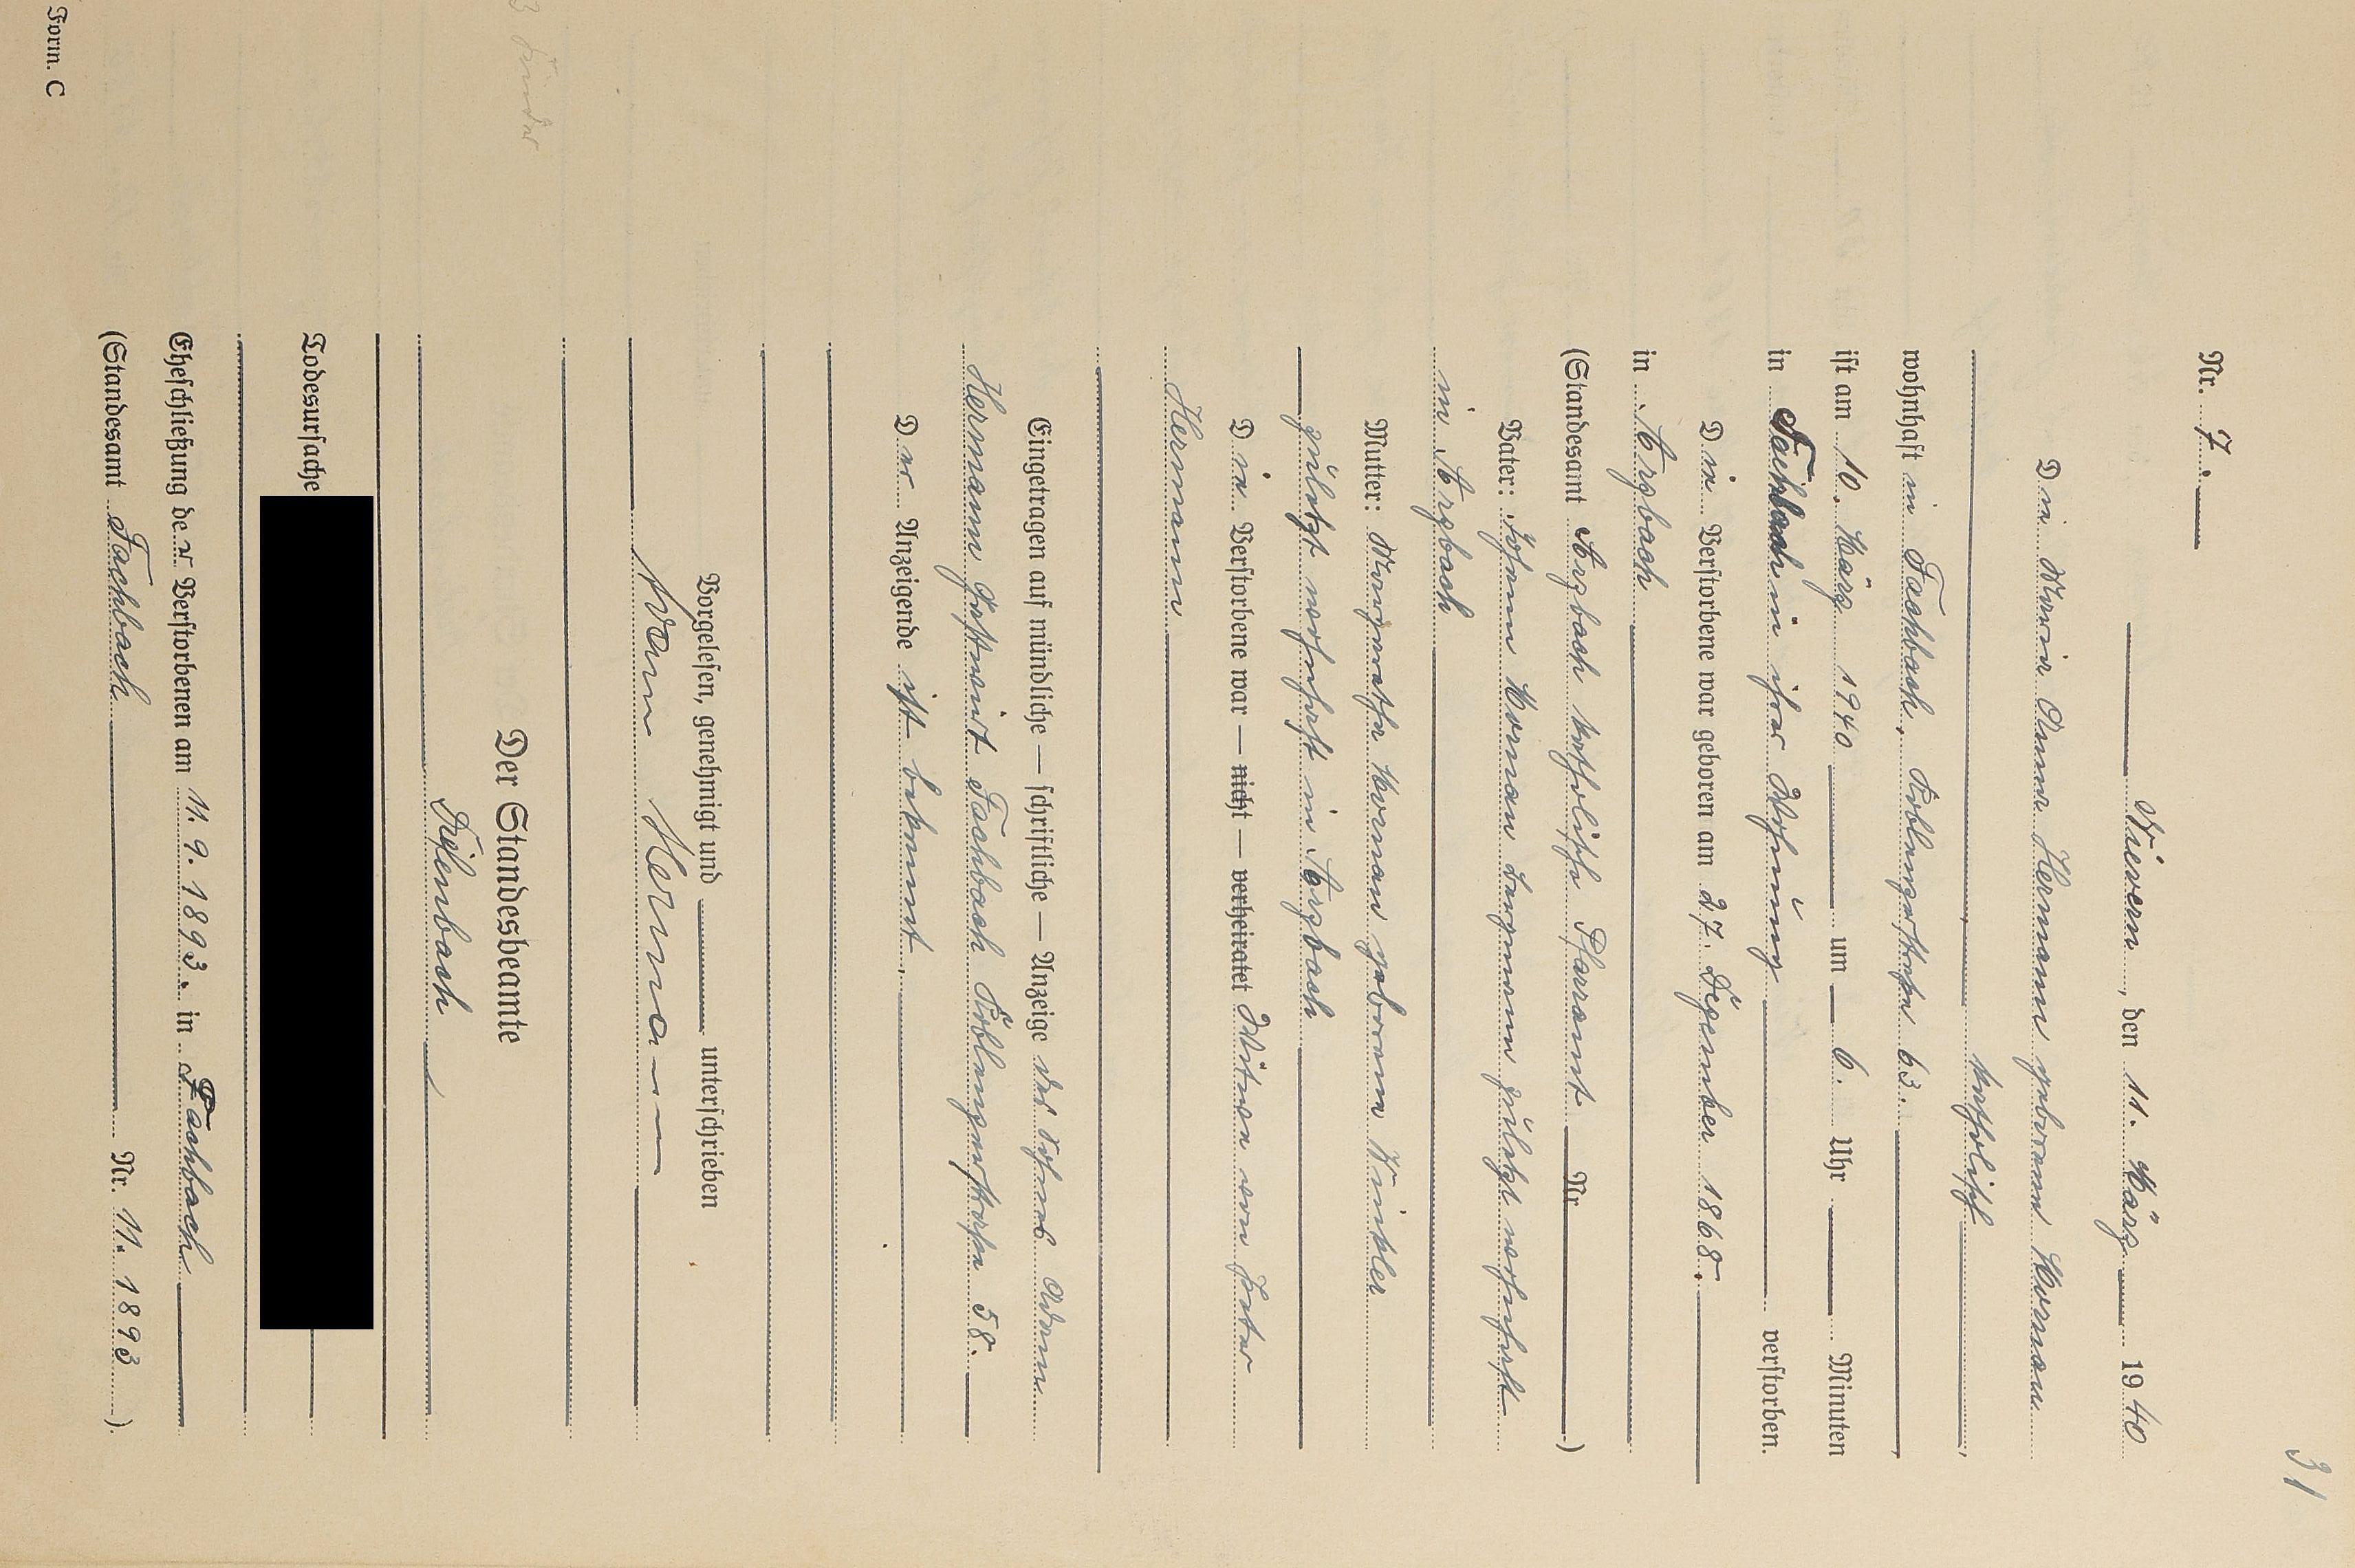 31
Nr. 7.
Nievern, den 11. März 1940
Die Maria Anna Hermann geborene Kornau
katholisch
wohnhaft in Fachbach, Koblenzerstraße 63.
ist am 10. März 1940 um 6. Uhr Minuten
in Fachbach in ihrer Wohnung verstorben.
Die Verstorbene war geboren am 27. Dezember 1868.
in Arzbach
(Standesamt Arzbach katholische Pfarramt Nr. )
Vater: Johann Kornau Bergmann zuletzt wohnhaft
in Arzbach
Mutter: Margaretha Kornau geborene Winkler
zuletzt wohnhaft in Arzbach
Die Verstorbene war — nicht — verheiratet Witwe von Peter
Hermann
Eingetragen auf mündliche — schriftliche — Anzeige des Sohnes Adam
Hermann Gastwirt Fachbach Koblenzerstraße 58.
Der Anzeigende ist bekannt.
Vorgelesen, genehmigt und unterschrieben
Adam Hermann
Der Standesbeamte
3 Kinder
Todesursache
Eheschließung der Verstorbenen am 11. 9. 1893. in Fachbach
(Standesamt Fachbach Nr. 11. 1893 ).
Form. C